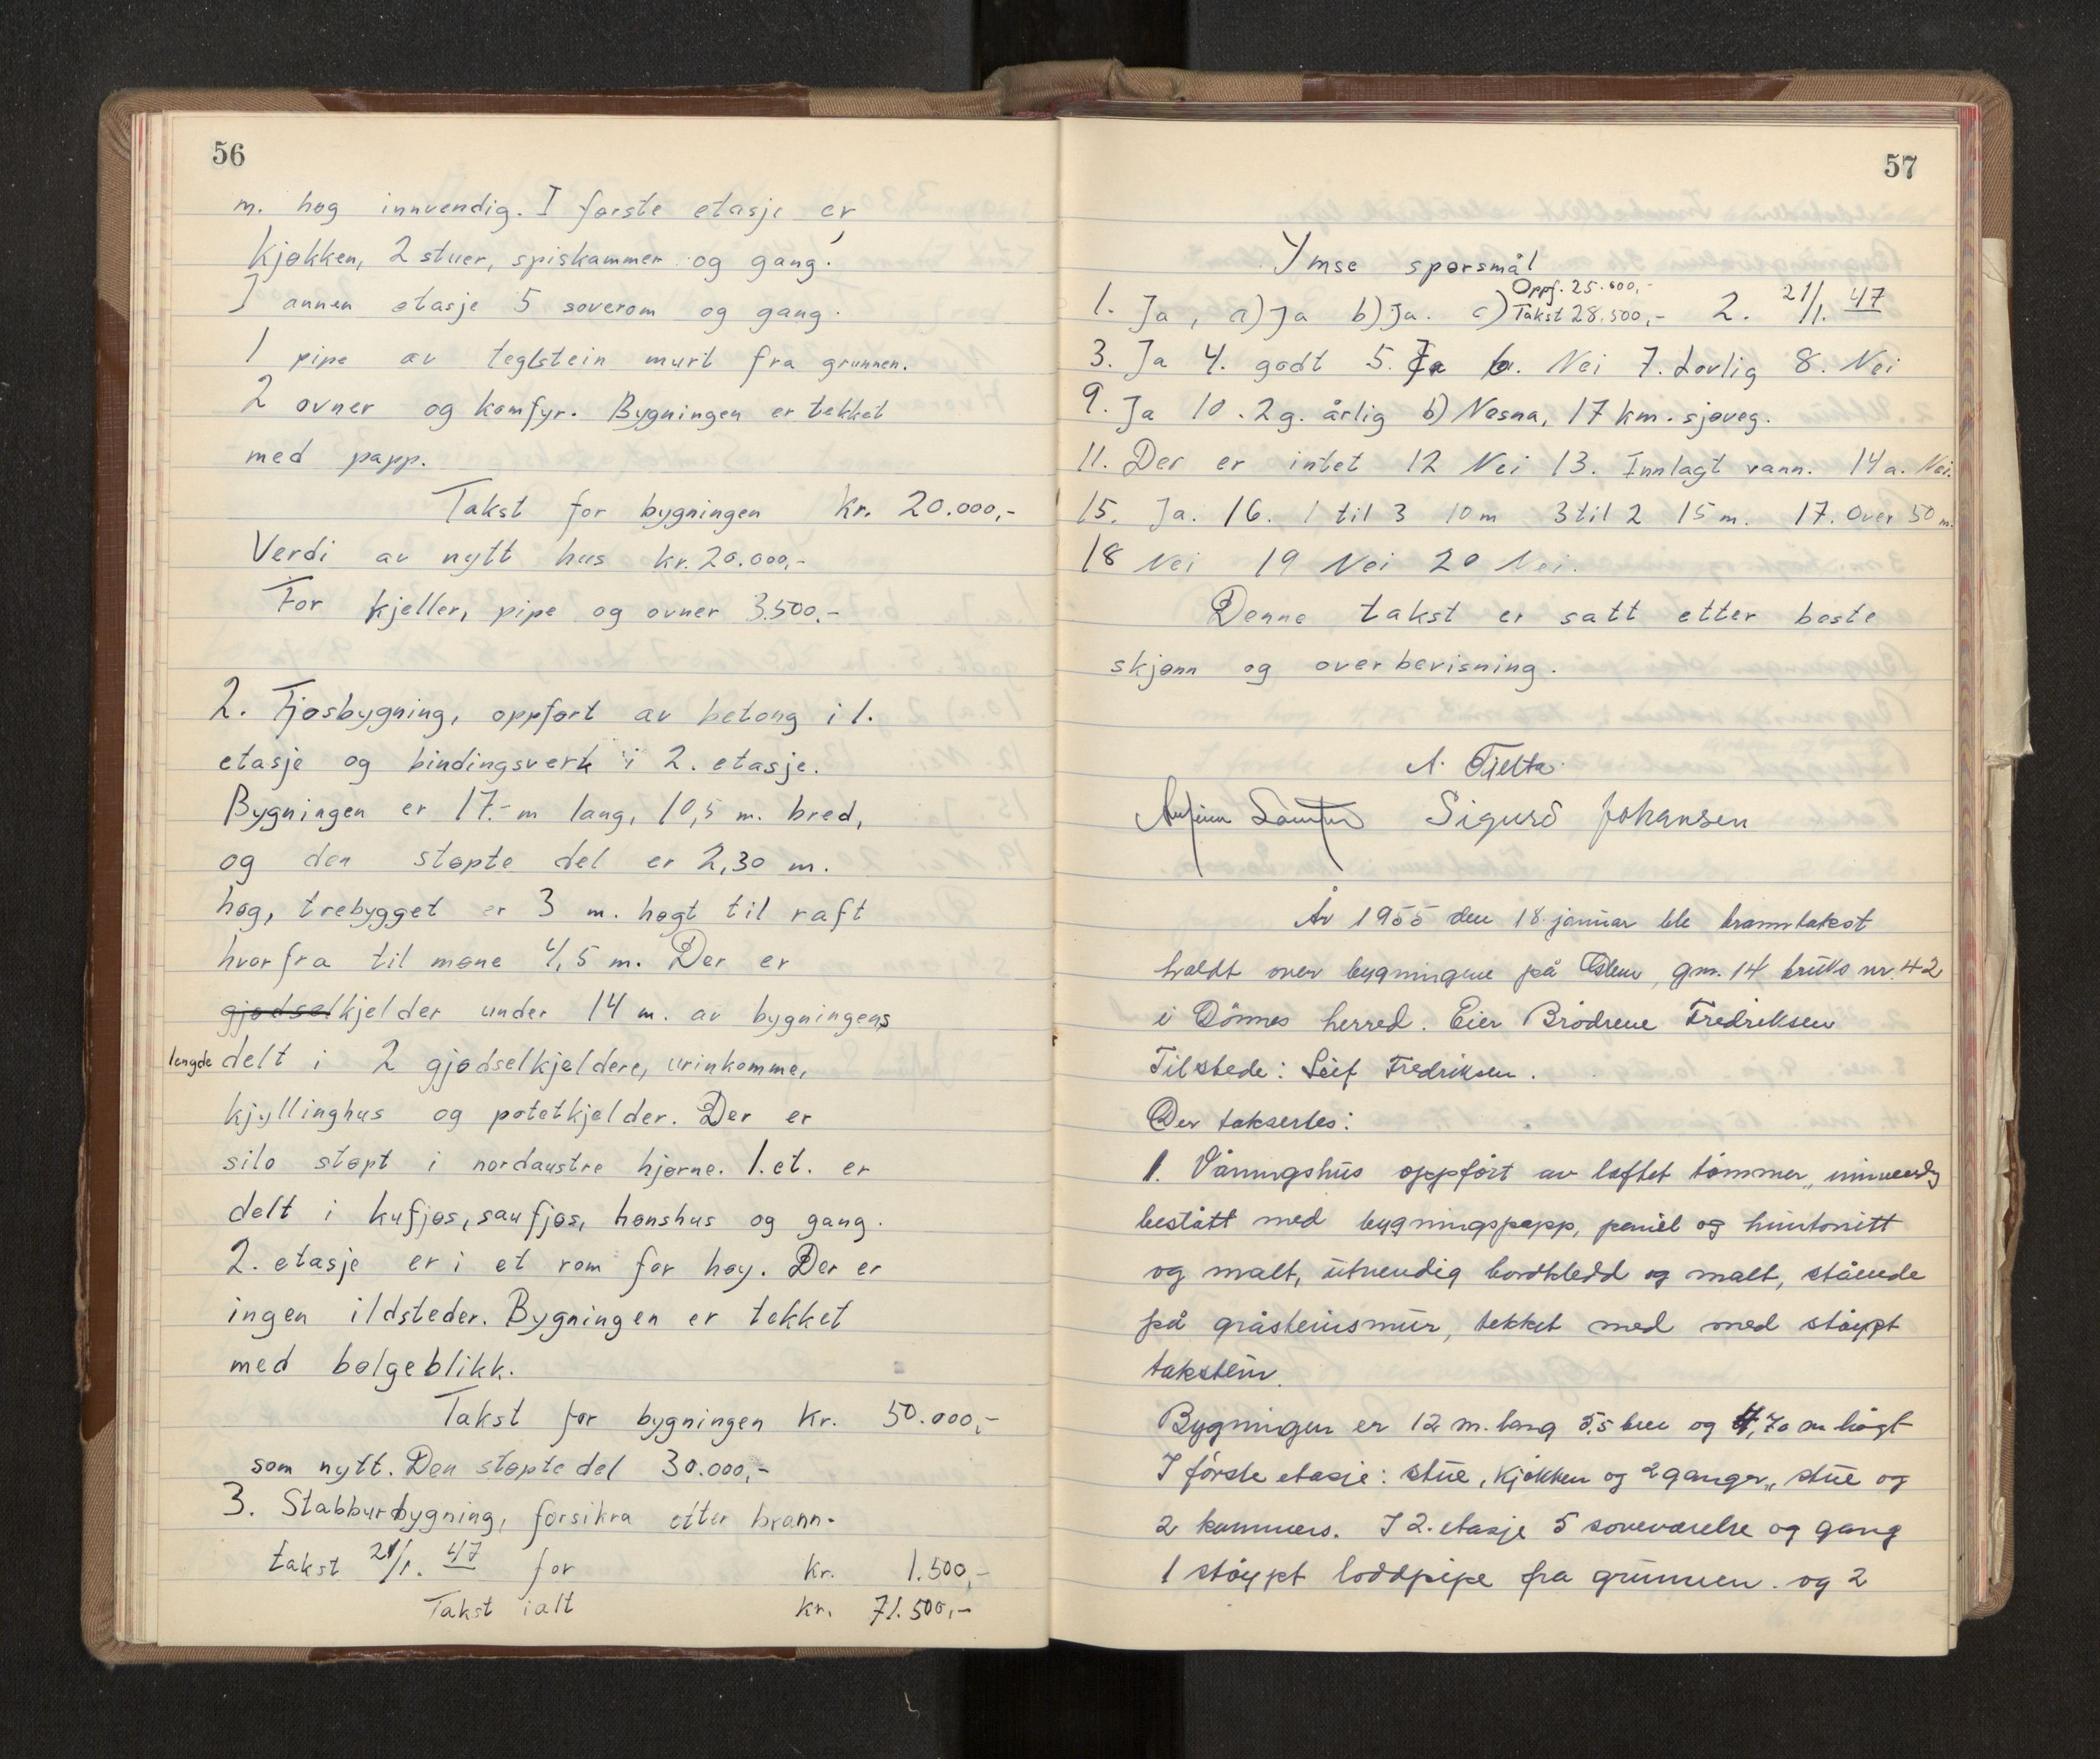 56
m. høg innvendig. I første etasje er
kjøkken, 2 stuer, spiskammer og gang.
I annen etasje 5 soverom og gang.
1 pipe av teglstein murt fra grunnen.
2 ovner og komfyr. Bygningen er tekket
med papp.
Takst for bygningen kr. 20.000,-
Verdi av nytt hus kr. 20.000,-
For kjeller, pipe og ovner 3.500.-
2. Fjøsbygning, oppført av betong i 1.
etasje og bindingsverk i 2. etasje.
Bygningen er 17.- m lang, 10,5 m. bred,
og den støpte del er 2,30 m.
høg, trebygget er 3 m. høgt til raft
hvorfra til møne 4,5 m. Der er
gjødselkjelder under 14 m. av bygningens
lengde delt i 2 gjødselkjeldere, urinkomme,
kjyllinghus og potetkjelder. Der er
silo støpt i nordaustre hjørne. 1. et. er
delt i kufjøs, saufjøs, hønshus og gang.
2. etasje er i et rom for høy. Der er
ingen ildsteder. Bygningen er tekket
med bølgeblikk.
Takst for bygningen kr. 50.000,-
som nytt. Den støpte del 30.000,-
3. Stabburbygning, forsikra etter brann-
takst 21/1. 47 for kr. 1.500,-
Takst ialt kr. 71.500,-
57
Ymse spørsmål
Oppf. 25.600,-
1. Ja, a) Ja b) Ja. c) Takst 28.500,- 2. 21/1. 47
3. Ja 4. godt 5. Ja 6. Nei 7. Lovlig 8. Nei
9. Ja 10. 2 g. årlig b) Nesna, 17 km. sjøveg.
11. Der er intet 12 Nei 13. Innlagt vann. 14 a. Nei.
15. Ja. 16. 1 til 3 10 m 3 til 2 15 m. 17. Over 50 m.
18 Nei 19 Nei 20 Nei.
Denne takst er satt etter beste
skjønn og overbevisning.
A. Tjelta
Sigurd Johansen
År 1955 den 18. januar ble branntakst
holdt over bygningene på gnr. 14 bruks nr. 42
i Dönnes herred. Eier Brødrene Fredriksen
Tilstede: Leif Fredriksen.
Der taksertes:
1. Våningshus oppført av laftet tømmer, innvendig
beslått med bygningspapp, panel og huntonitt
og malt, utvendig bordkledd og malt, stående
på gråsteinsmur, tekket med med støypt
takstein.
Bygningen er 12 m. lang 5,5 bre og 4,70 m høgt
I første etasje: stue, kjøkken og 2 ganger, stue og
2 kammers. I 2. etasje 5 soveværelse og gang
1 støypt loddpipe fra grunnen. og 2